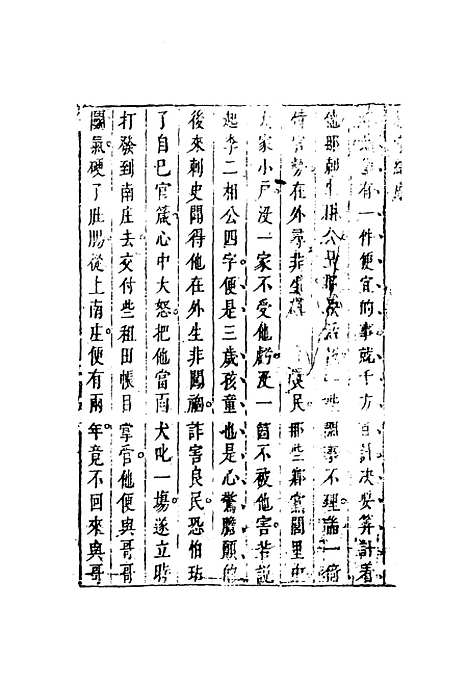 有一件便宜的事就千方百計决要算計看
他那刺 些 事不理論一
倚官势在外尋非生 良民那些鄉黨閭里中
大家小戶没一家不受他虧没一箇不被他害若說
起李二相公四字便是三歲孩童也是心驚膽顫的
後來刺史聞得他在外生非闖禍詐害良民恐怕玷
了自己官箴心中大怒把他當面大叱一塲遂立時
打發到南庄去交付些租田帳目掌管他便與哥哥
鬭氣硬了肚腸從上南庄便有兩年竟不回來與哥